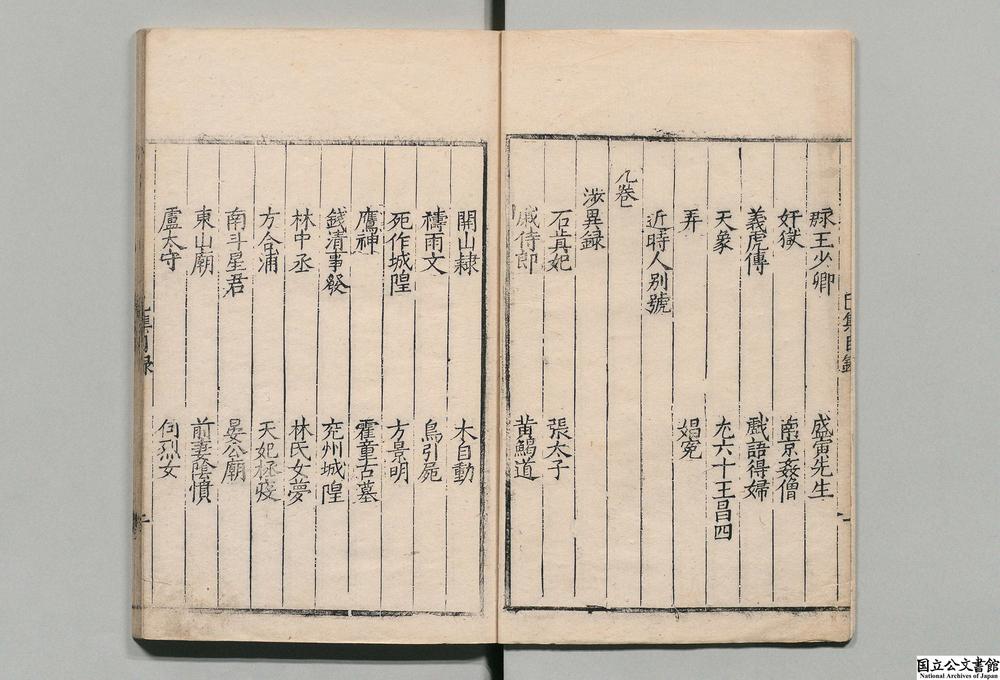 王少卿 盛寅先生
奸獄 南京姦僧
義虎傳 戲語得婦
天象 尤六十王昌四
弄 娼冤
近時人别號
八卷
涉異録
石真妃 張太子
戚侍郎 黄鱔道
開山隷 木自動
禱雨文 鳥引屍
死作城隍 方景明
鷹神 霍童古墓
錢清事發 兖州城隍
林中丞 林氏女夢
方合浦 天妃拯疫
南斗星君 晏公廟
東山廟 前妻陰憤
盧太守 烈女
国立公文書館
National Archives of Japan